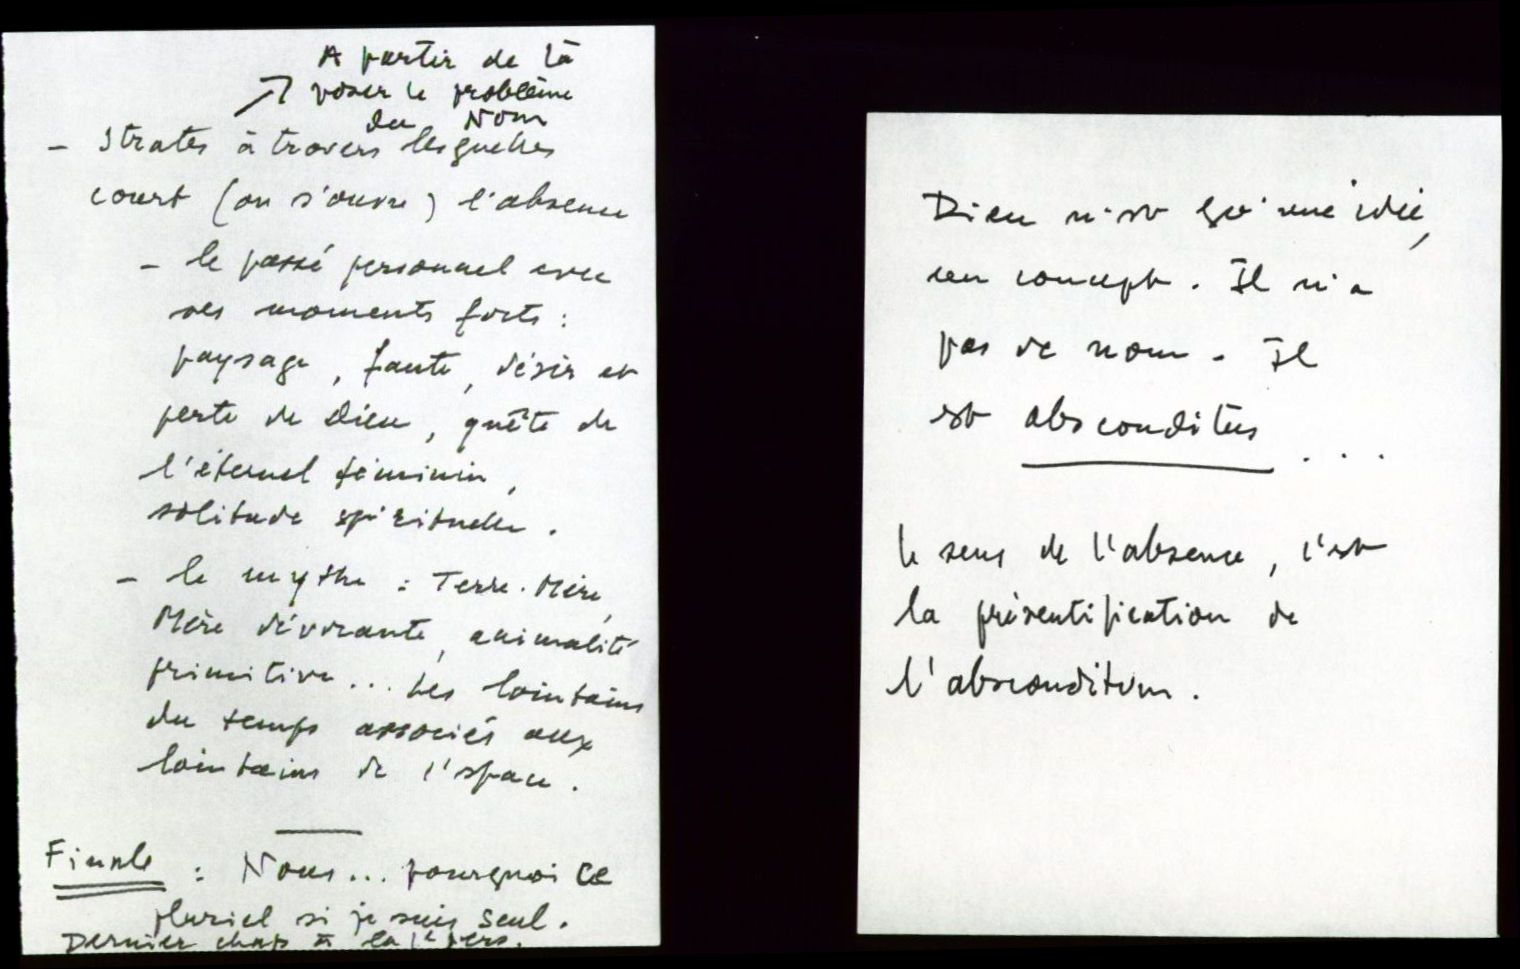 A partir de là
↗ poser le problème
du Nom
– Strates à travers lesquelles
court (ou s'ouvre) l'absence
– le passé personnel avec
ses moments forts :
paysage, faute, désir et
perte de Dieu, quête de
l'éternel féminin,
solitude spirituelle.
– le mythe : Terre-Mère,
Mère dévorante, animalité
primitive... Les lointains
du temps associés aux
lointains de l'espace.
Finale : Nous... pourquoi ce
pluriel si je suis seul.
Dernier chap à la 1e pers.
Dieu n'est qu'une idée,
un concept. Il n'a
pas de nom. Il
est absconditus ...
le sens de l'absence, c'est
la présentification de
l'absconditum.